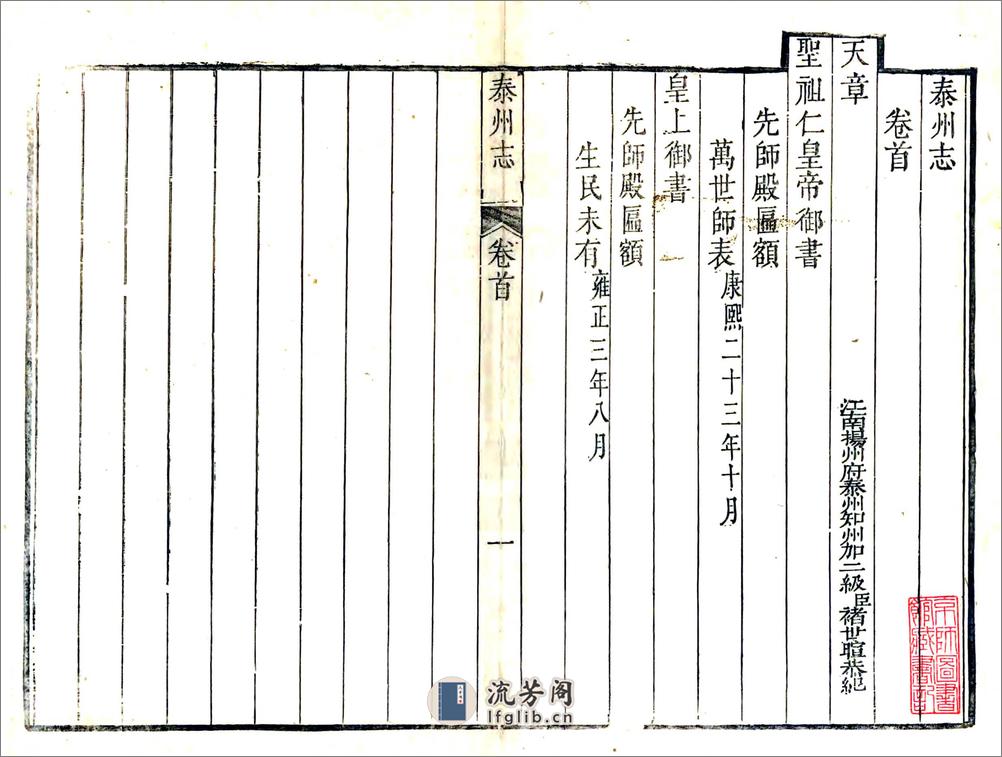 泰州志
卷首
天章
江南揚州府泰州知州加二級臣褚世暄恭紀
聖祖仁皇帝御書
先師殿匾額
萬世師表康熙二十三年十月
皇上御書
先師殿匾額
生民未有雍正三年八月
泰州志
卷首
一
京師圖書館藏書記
流芳阁
lfglib.cn